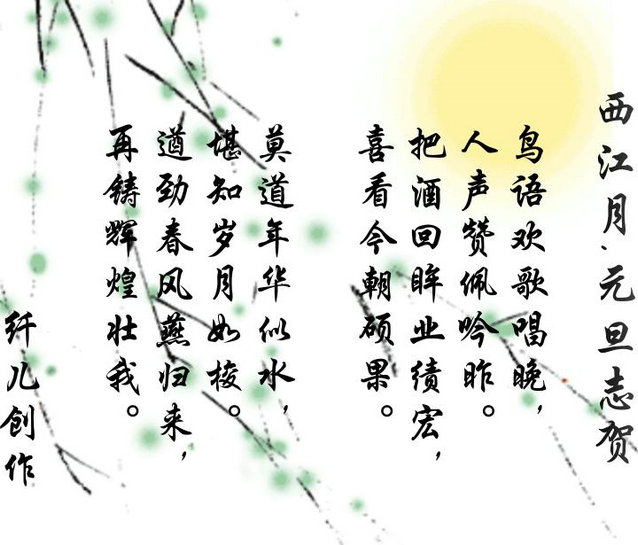 西江月、元旦志贺
鸟语欢歌唱晚，
人声赞佩吟昨。
把酒回眸业绩宏，
喜看今朝硕果。
莫道年华似水，
堪知岁月如梭。
遒劲春风燕归来，
再铸辉煌壮我。
纤儿创作